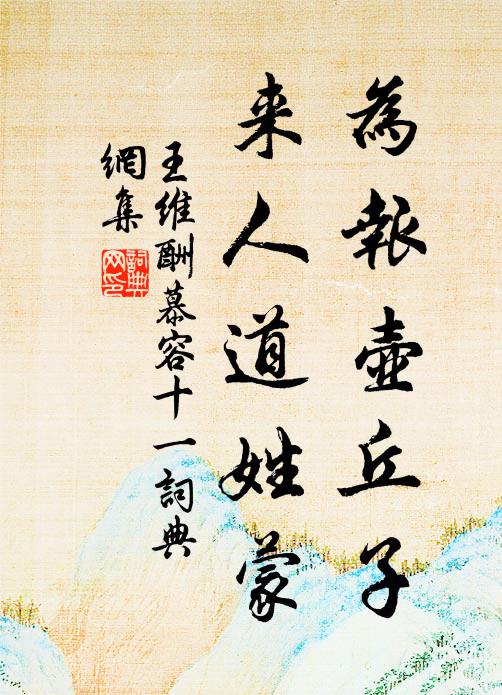 為報壺丘子
来人道姓蒙
王維酬慕容十一詞典
網集
詞典
网印